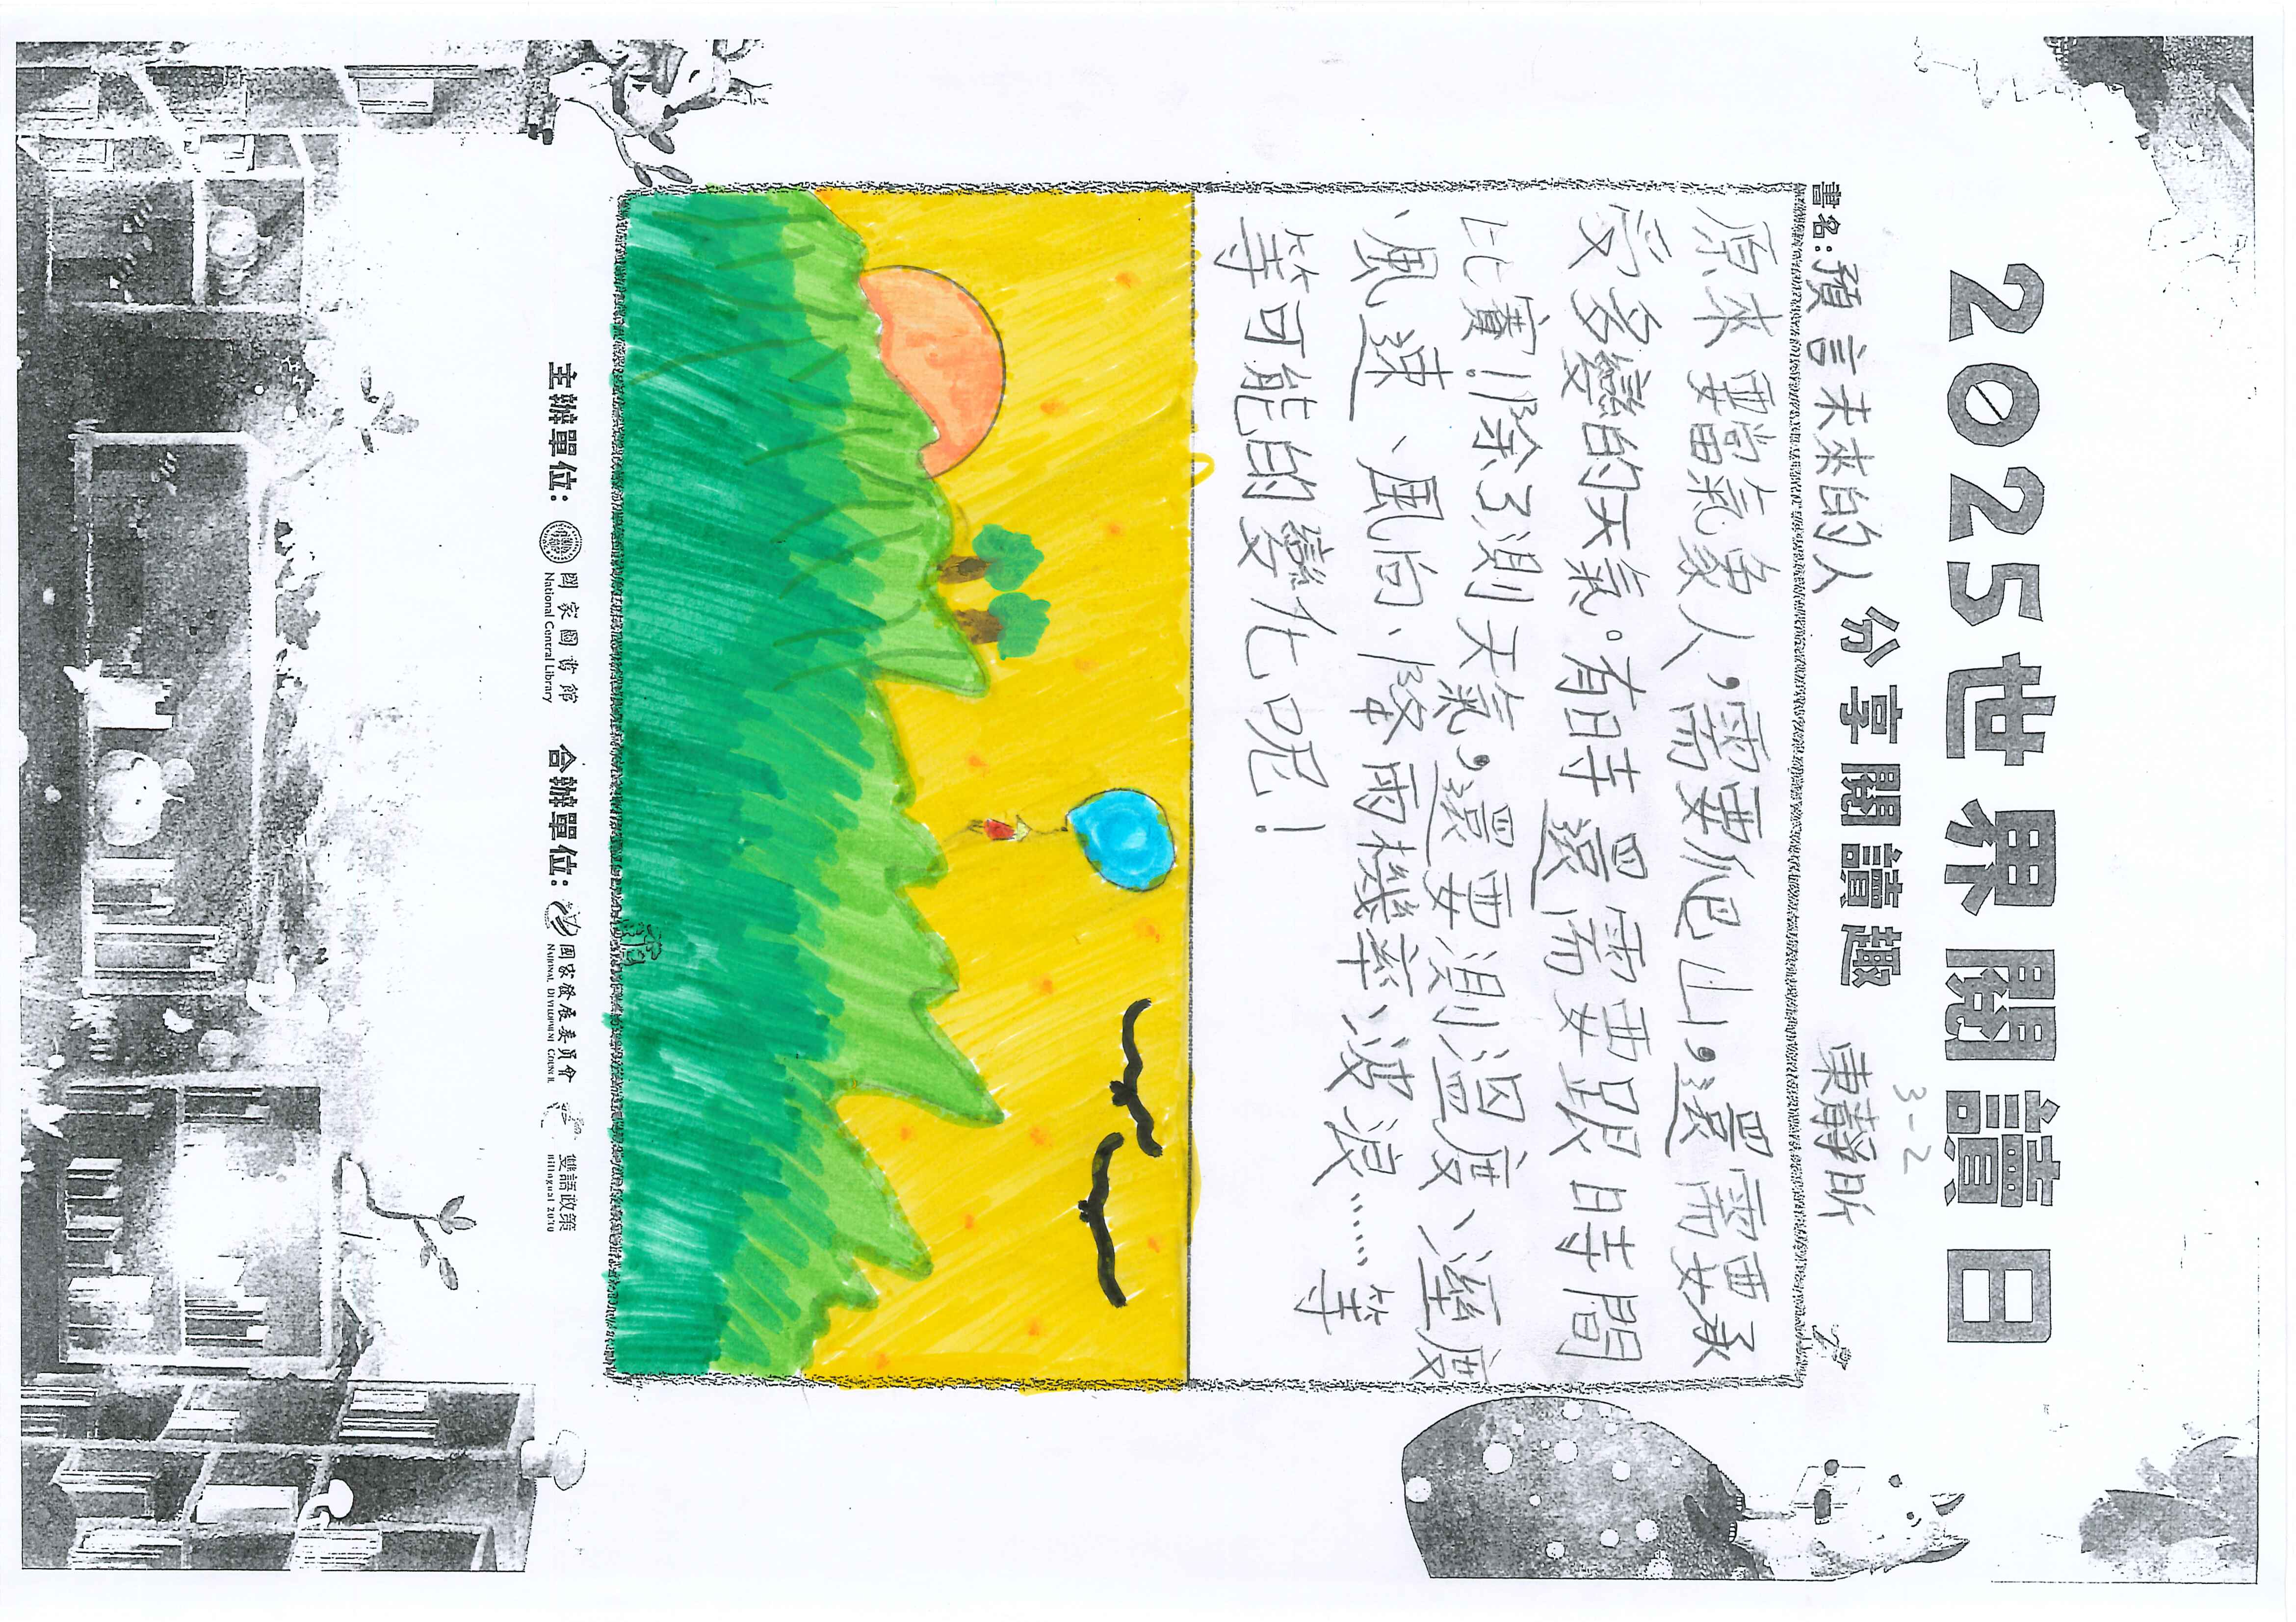 2025世界閱讀日
分享閱讀趣
3-2
書名：預言未來的人
原來要當氣象人，需要爬山，還需要承
受多變的天氣。有時還需要跟時間
比賽！除了測天氣，還要測溫度、溼度
、風速、風向、降雨機率、波浪……等
等可能的變化呢！
主辦單位：國家圖書館 National Central Library 合辦單位：國家發展委員會 NATIONAL DEVELOPMENT COUNCIL 雙語政策 Bilingual 2030